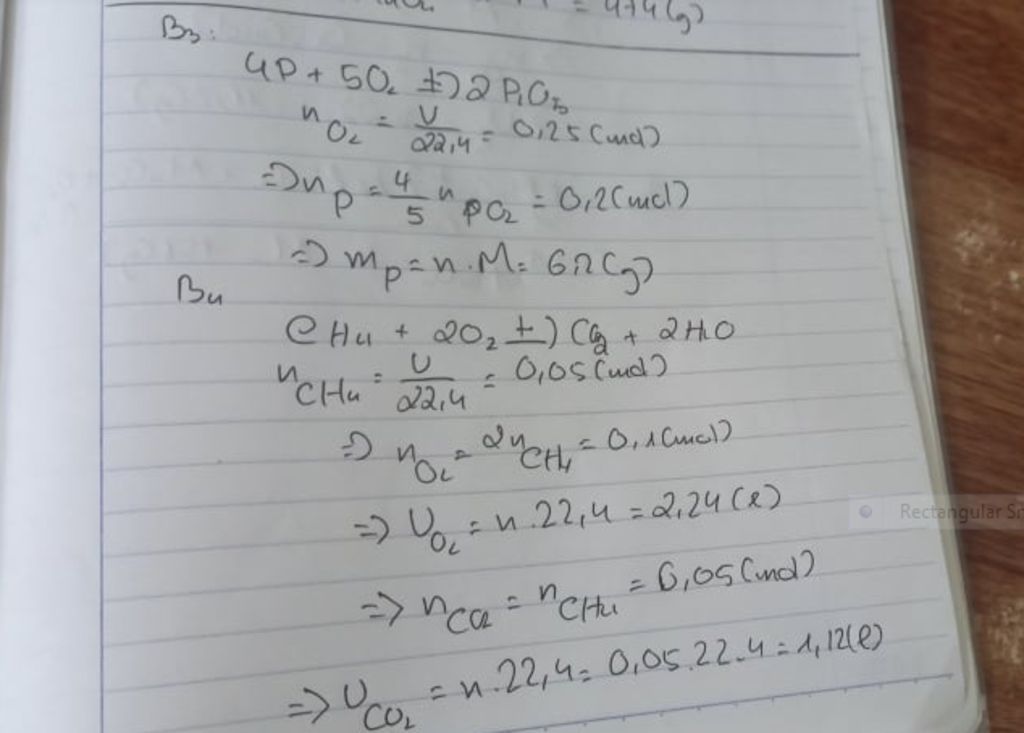 = 474(g)
B3:
4P + 5O2 t→ 2P2O5
nO2 = V/22,4 = 0,25 (mol)
=> nP = 4/5 nO2 = 0,2 (mol)
=> mP = n.M = 6,2 (g)
B4
CH4 + 2O2 t→ CO2 + 2H2O
nCH4 = V/22,4 = 0,05 (mol)
=> nO2 = 2nCH4 = 0,1 (mol)
=> VO2 = n.22,4 = 2,24 (l)
=> nCO2 = nCH4 = 0,05 (mol)
=> VCO2 = n.22,4 = 0,05.22.4 = 1,12 (l)
Rectangular Sn